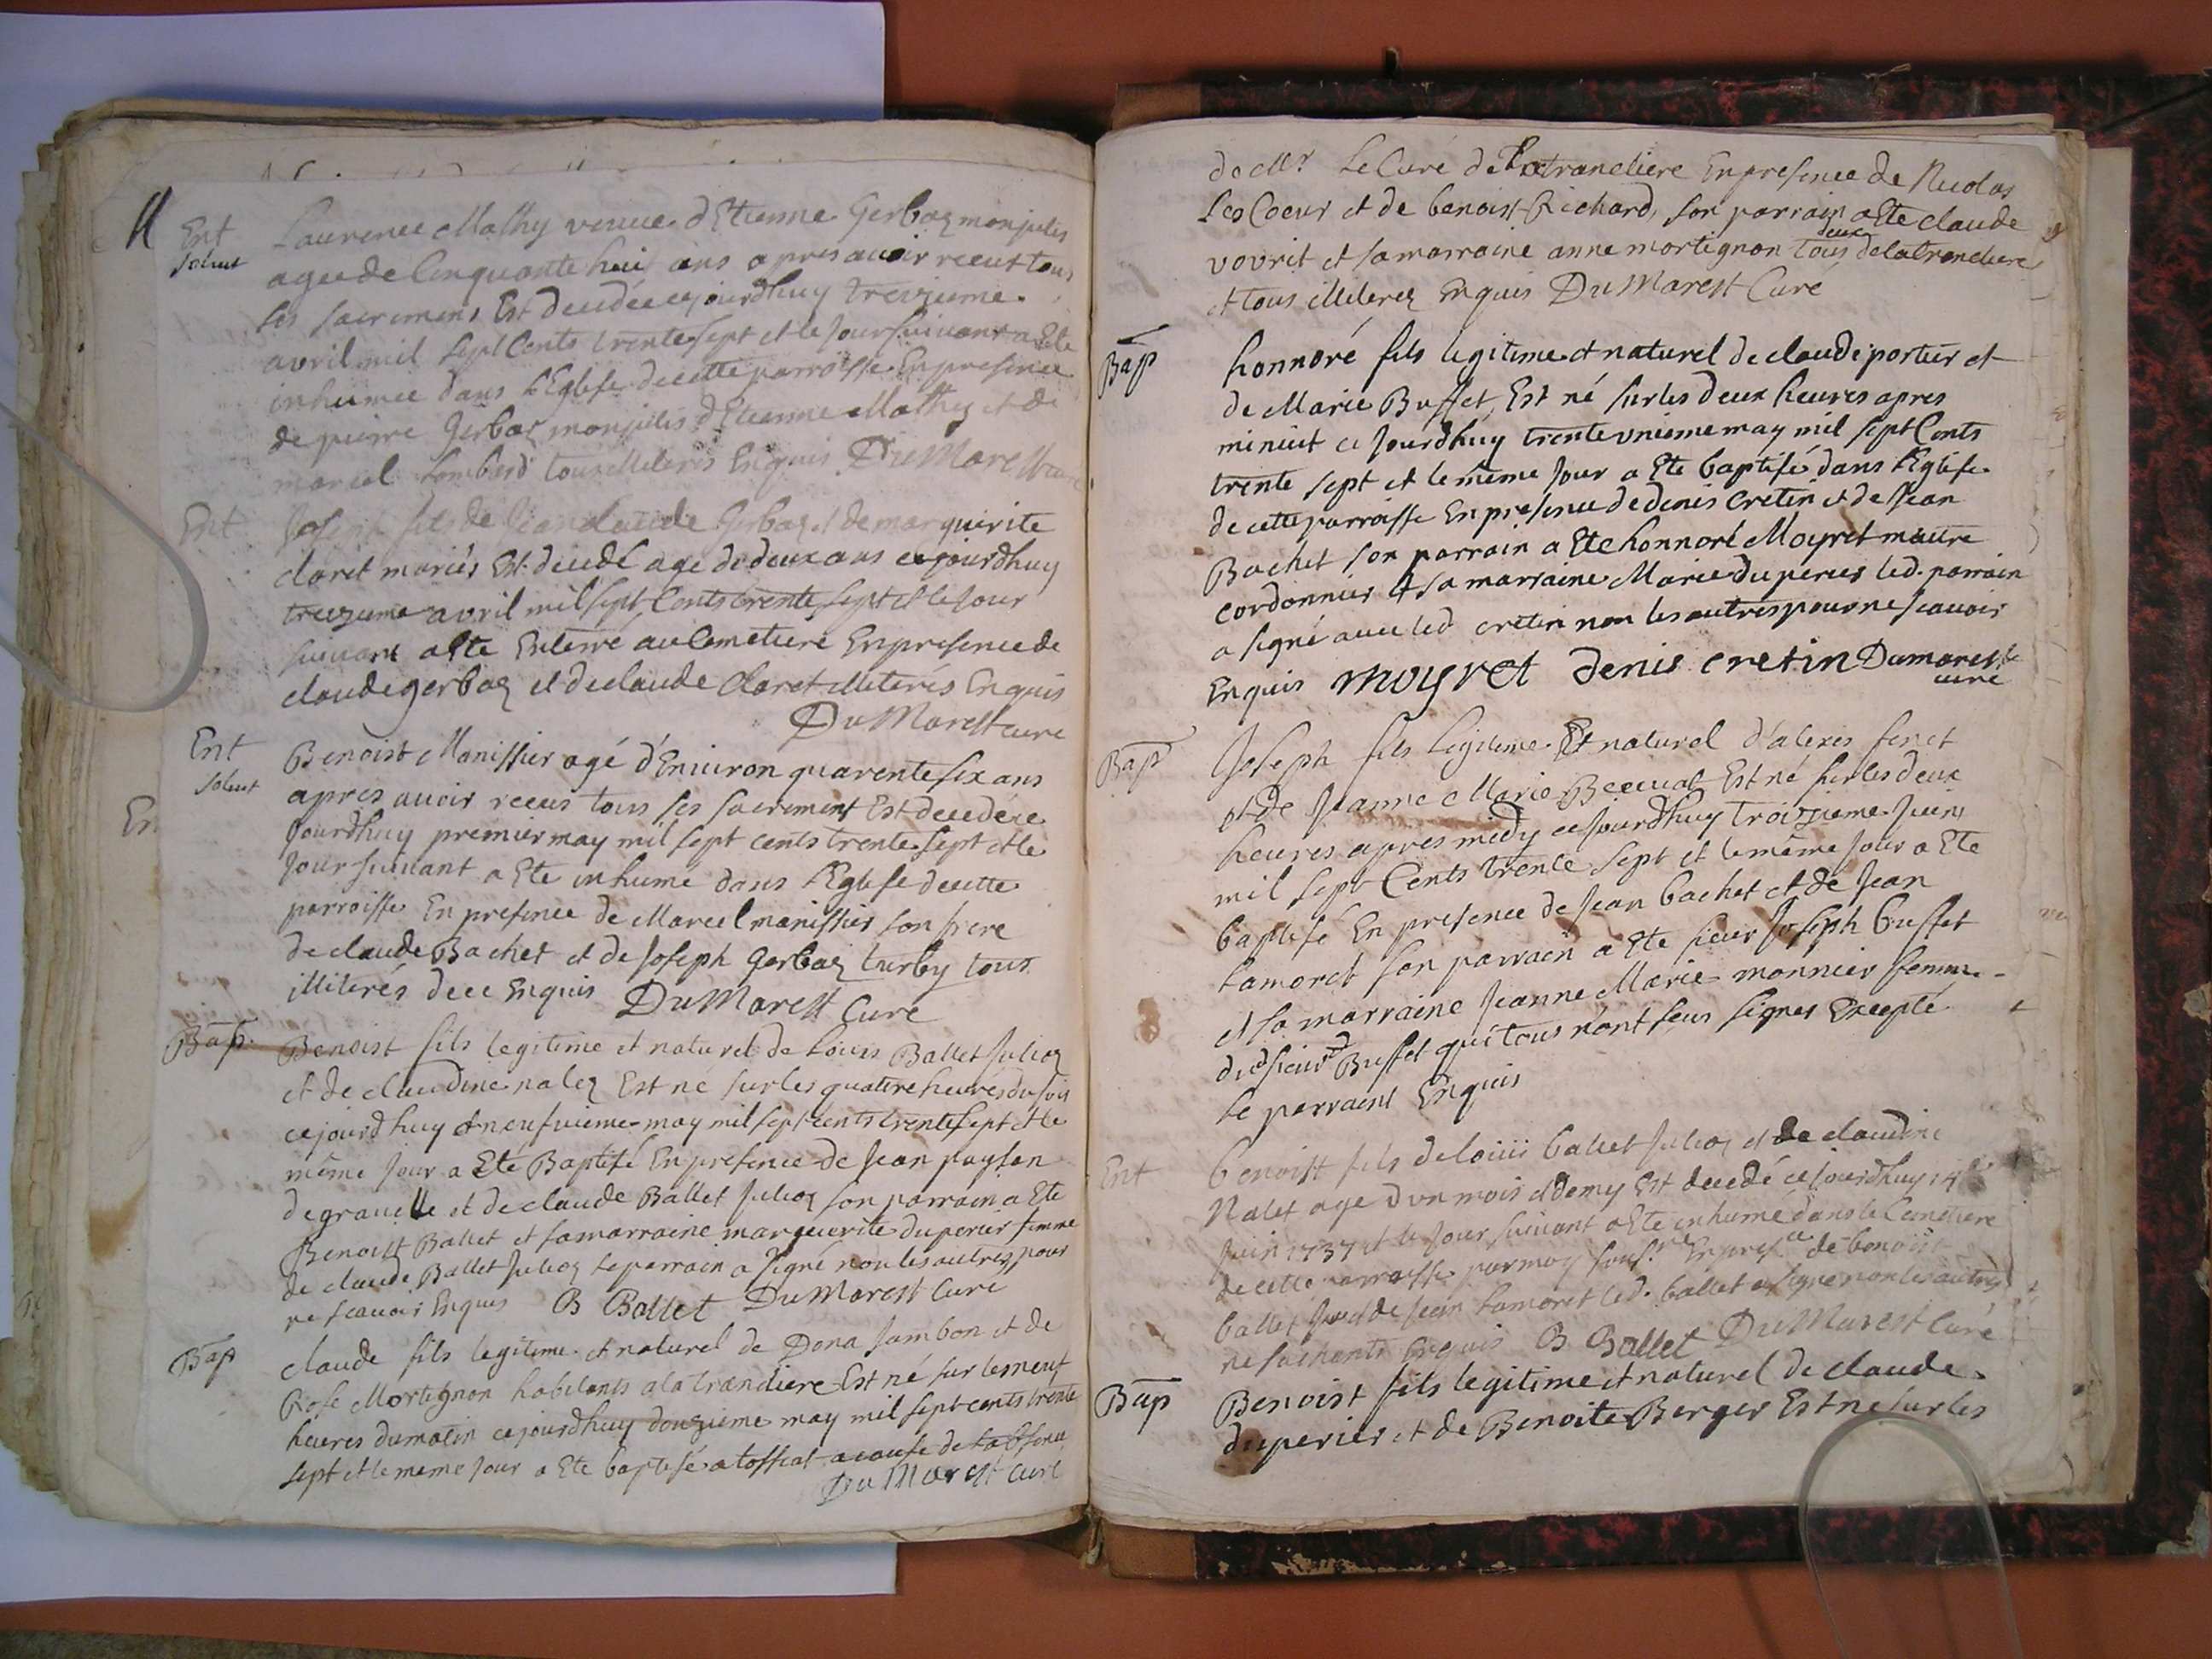 Ent
solut
Laurence Mathy veuve d'Etienne Gerbaz monjulis
agee de Cinquante huit ans apres avoir receut tous
les sacremens Est decedée cejourdhuy treizieme
avril mil sept Cents trente sept et le Jour suivant a Ete
inhumée dans l'Eglise de cette parroisse En presence
de pierre Gerbaz monjulis d'Etienne Mathy et de
marcel Lombard tous illiteres Enquis DuMarest curé
Ent
Joseph fils de Jean claude Gerbaz et de marguerite
claret mariés Est decedé age de deux ans cejourdhuy
treizieme avril mil sept Cents trente sept et le Jour
suivant a Ete Enterré au Cemetiere En presence de
claude gerbaz et de claude Claret illiterés Enquis
DuMarest curé
Ent
solut
Benoist Manissier agé d'Environ quarente six ans
apres avoir receus tous ses sacrement Est decedé ce
Jourdhuy premier may mil sept cents trente sept et le
Jour suivant a Ete inhumé dans l'Eglise de cette
parroisse En presence de Marcel manissier son frere
de claude Bachet et de Joseph Gerbaz turby tous
illiterés de ce Enquis DuMarest Curé
Bap.
Benoist fils legitime et naturel de Louis Ballet Julioz
et de claudine nalez Est né sur les quattre heures du soir
cejourdhuy neufvieme may mil sept cents trente sept et le
même Jour a Eté Baptisé En presence de Jean paysan
degravelle et de claude Ballet Julioz son parrain a Ete
Benoist Ballet et sa marraine marguerite duperier femme
de claude Ballet Julioz le parrain a signé non les autres pour
ne scavoir Enquis B Ballet DuMarest Curé
Bap
claude fils legitime et naturel de Dona Jambon et de
Rose Mortignon habitants a la trancliere Est né sur les neuf
heures du matin cejourdhuy douzieme may mil sept cents trente
sept et le meme Jour a Ete baptisé a tossiat a cause de l'absence
DuMarest curé
de Mr Le Curé de la tranclière En presence de Nicolas
Les Coeur et de benoist Richard, son parrain a Ete claude
vovrit et sa marraine anne mortignon tous deux de la trancliere
et tous illiterez Enquis DuMarest Curé
Bap
honnoré fils legitime et naturel de claude portier et
de Marie Buffet, Est né sur les deux heures apres
minuit ce Jourdhuy trente unieme may mil sept Cents
trente sept et le même Jour a Ete baptisé dans l'Eglise
de cette parroisse En presence de denis Cretin et de Jean
Bachet son parrain a Ete honnoré Moyret maitre
cordonnier et sa marraine Marie du perier led. parrain
a signé avec led cretin non les autres pour ne scavoir
Enquis moyret denis cretin Dumarest
curé
Bap
Joseph fils legitime Et naturel d'alexis feret
et de Jeanne Marie Beccuat Est né sur les deux
heures apres midy cejourdhuy troizieme Juin
mil sept Cents trente sept et le même Jour a Ete
baptisé En presence de Jean bachet et de Jean
tamoret son parrain a Ete sieur Joseph buffet
et sa marraine Jeanne Marie monnier femme
dud sieur Buffet qui tous n'ont sceus signer Excepté
le parraint Enquis
Ent
benoist fils de louis ballet Julioz et de claudine
Nalet age d'un mois et demy Est decedé cejourdhuy 14e
Juin 1737 et le Jour suivant a Ete inhumé dans le Cemetiere
de cette parroisse par moy En presce de benoist
ballet et de Jean tamoret led. ballet a signé non les autres
ne sachants Enquis B Ballet DuMarest Curé
Bap
Benoist fils legitime et naturel de claude
duperier et de Benoite Berger Est né sur les